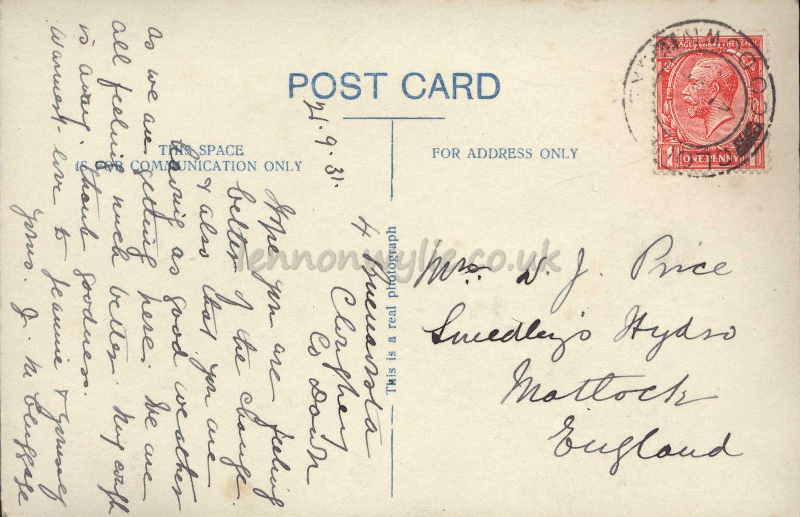 POST CARD
THIS SPACE
IS FOR COMMUNICATION ONLY
FOR ADDRESS ONLY
This is a real photograph
POSTAGE REVENUE
ONE PENNY
21.9.31.
4 Buenavista
Cloughey
Co Down
Hope you are feeling
better of the change.
& also that you are
having as good weather
as we are getting here. We are
all feeling much better. Hay
is away. thank goodness.
Warmest love to Jeannie & yourself
Yours. J. M
Mrs D. J. Price
Smedley's Hydro
Matlock
England
lennonwylie.co.uk